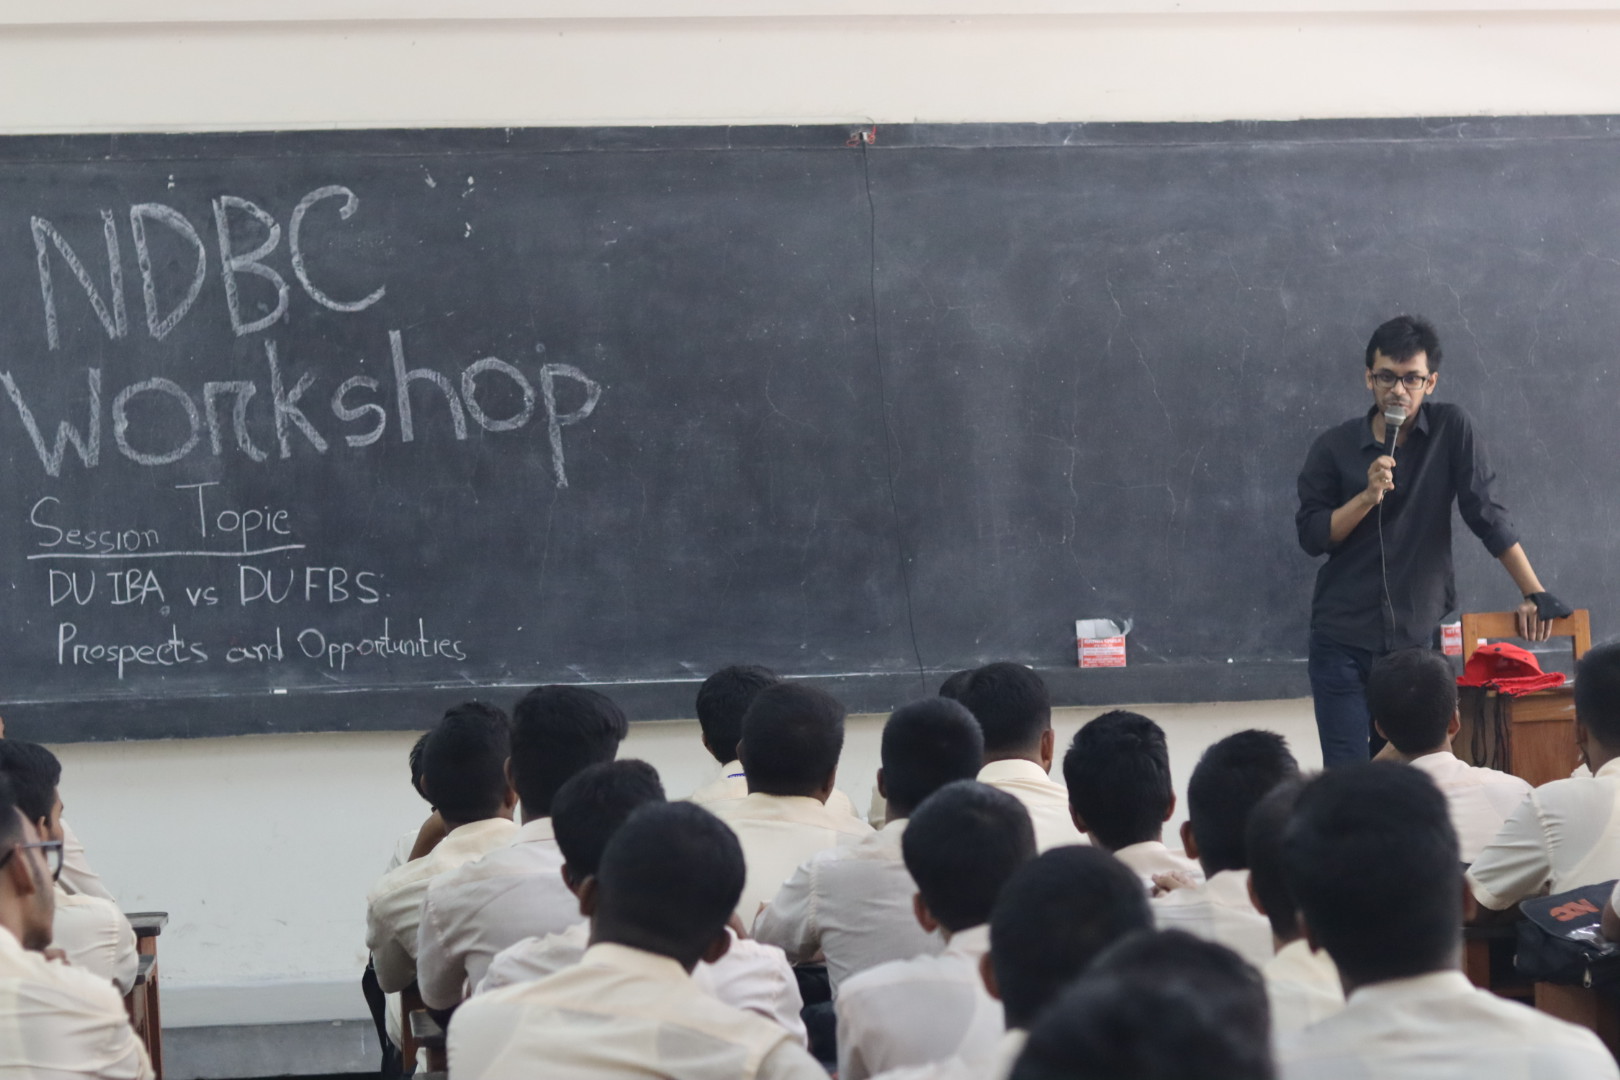 NDBC
Workshop
Session Topic
DU IBA vs DU FBS:
Prospects and Opportunities